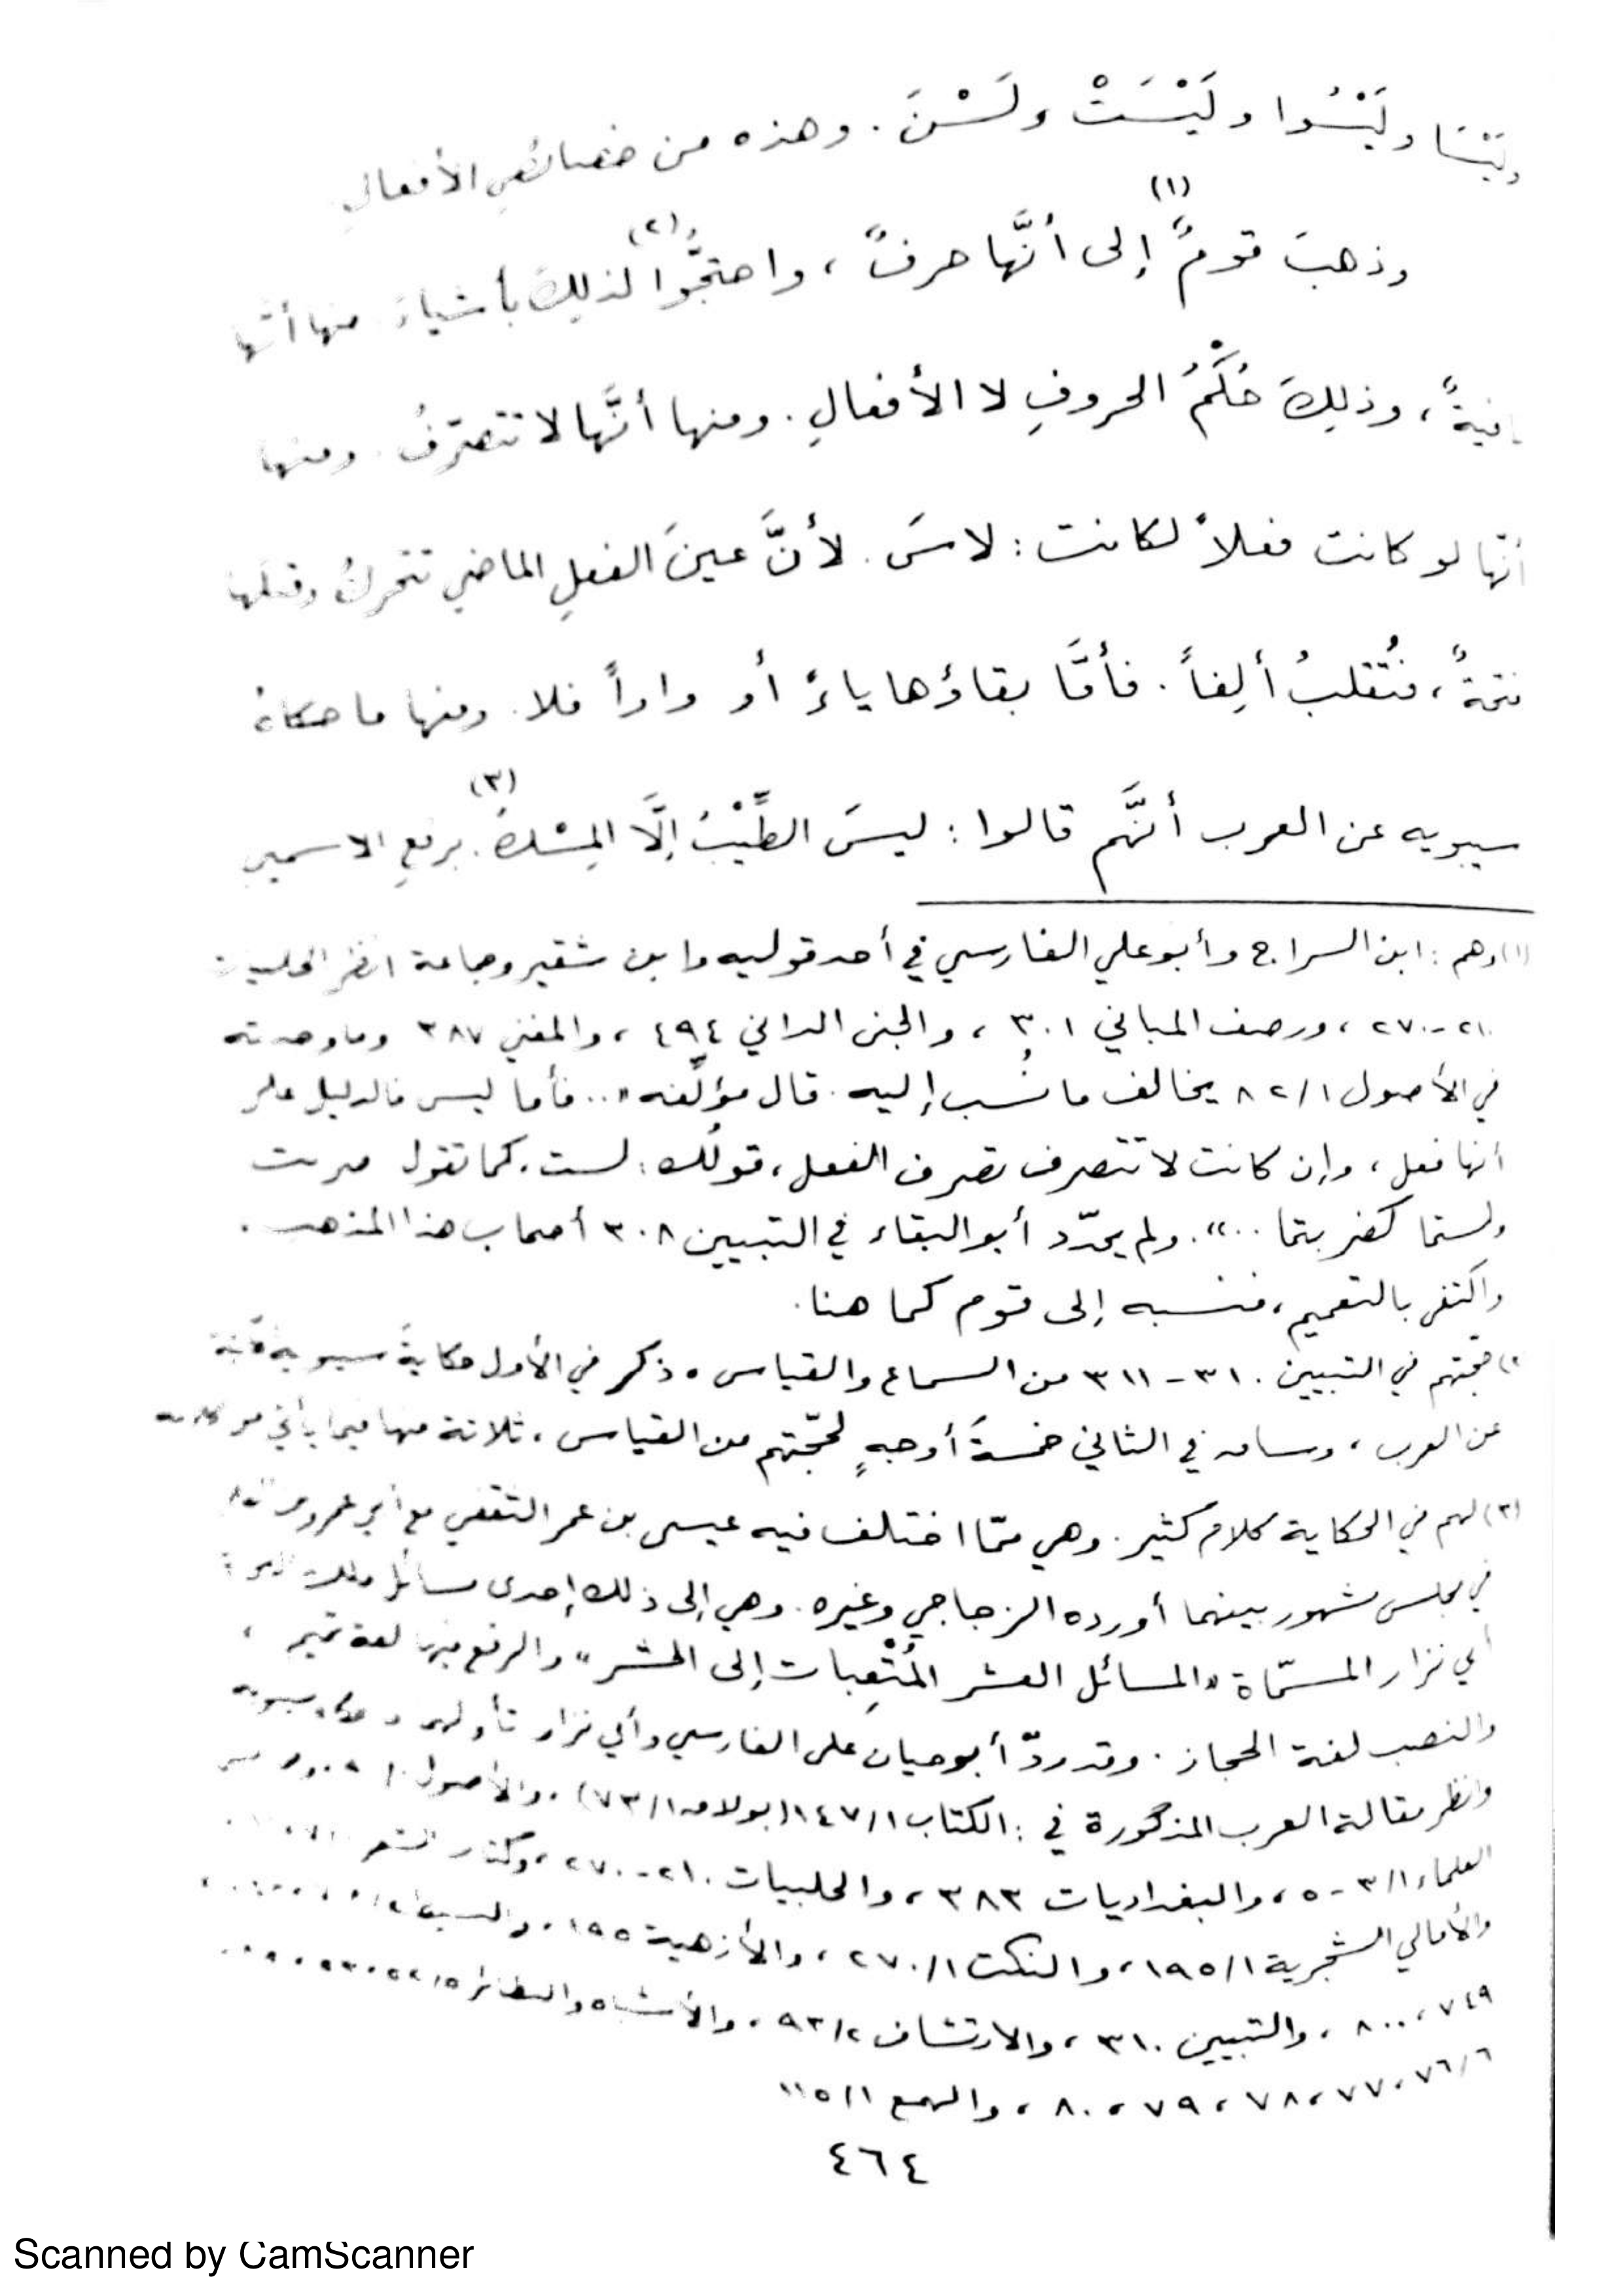 ولَيْسَا ولَيْسُوا ولَيْسَتْ ولَسْنَ. وهذه من خصائصِ الأفعالِ
وذهبَ قومٌ (١) إلى أنَّها حرفٌ، واحتجُّوا (٢) لذلِكَ بأشياءَ منها أنّها
نافيةٌ، وذلِكَ حُكْمُ الحروفِ لا الأفعالِ. ومنها أنَّها لا تتصرّفُ. ومنها
أنّها لو كانت فعلاً لكانت: لاسَ. لأنَّ عينَ الفعلِ الماضي تتحركُ وقبلها
فتحةٌ، فتُقلبُ ألِفاً. فأمَّا بقاؤها ياءً أو واواً فلا. ومنها ما حكاهُ
سيبويه عن العرب أنَّهم قالوا: ليسَ الطِّيْبُ إلَّا المِسْكُ (٣). برفعِ الاسمين
(١) وهم: ابن السراج وأبو علي الفارسي في أحد قوليه وابن شقير وجماعة انظر الحلبيات
٢١٠-٢٧٠، ورصف المباني ٣٠١، والجنى الداني ٤٩٤، والمغني ٣٨٧ وما وجدته
في الأصول ٨٢/١ يخالف ما نُسب إليه. قال مؤلّفه «.. فأما ليس فالدليل على
أنها فعل، وإن كانت لا تتصرف تصرف الفعل، قولُك: لست. كما تقول ضربت
ولستما كضربتما ..». ولم يحدّد أبو البقاء في التبيين ٣٠٨ أصحاب هذا المذهب.
واكتفى بالتعميم، فنسبه إلى قوم كما هنا.
(٢) حجتهم في التبيين ٣١٠-٣١١ من السماع والقياس. ذكر في الأول حكايةَ سيبويه
عن العرب، وساق في الثاني خمسةَ أوجهٍ لحجّتهم من القياس، ثلاثة منها فيما يأتي من كلامه
(٣) لهم في الحكاية كلام كثير. وهي ممّا اختلف فيه عيسى بن عمر الثقفي مع أبي عمرو
في مجلس مشهور بينهما أورده الزجاجي وغيره. وهي إلى ذلك إحدى مسائل
أبي نزار المسمّاة «المسائل العشر المُتْعِبات إلى الحشر» والرفع فيها لغة تميم،
والنصب لغة الحجاز. وقد ردّ أبو حيان على الفارسي وأبي نزار
وانظر مقالة العرب المذكورة في: الكتاب ١٤٧/١ (بولاق ٧٣/١)، والأصول
العلماء ٣/١-٥، والبغداديات ٣٨٣، والحلبيات ٢١٠-٢٧٠، وكتاب الشعر
والأمالي الشجرية ١٩٥/١، والنكت ٢٧٠/١، والأزهية ١٩٥، والبسيط
٧٤٩، ٨٠٠، والتبيين ٣١٠، والارتشاف ٩٣/٢، والأشباه والنظائر
٧٦/٦، ٧٧، ٧٨، ٧٩، ٨٠، والهمع ١١٥/١
٤٦٤
Scanned by CamScanner